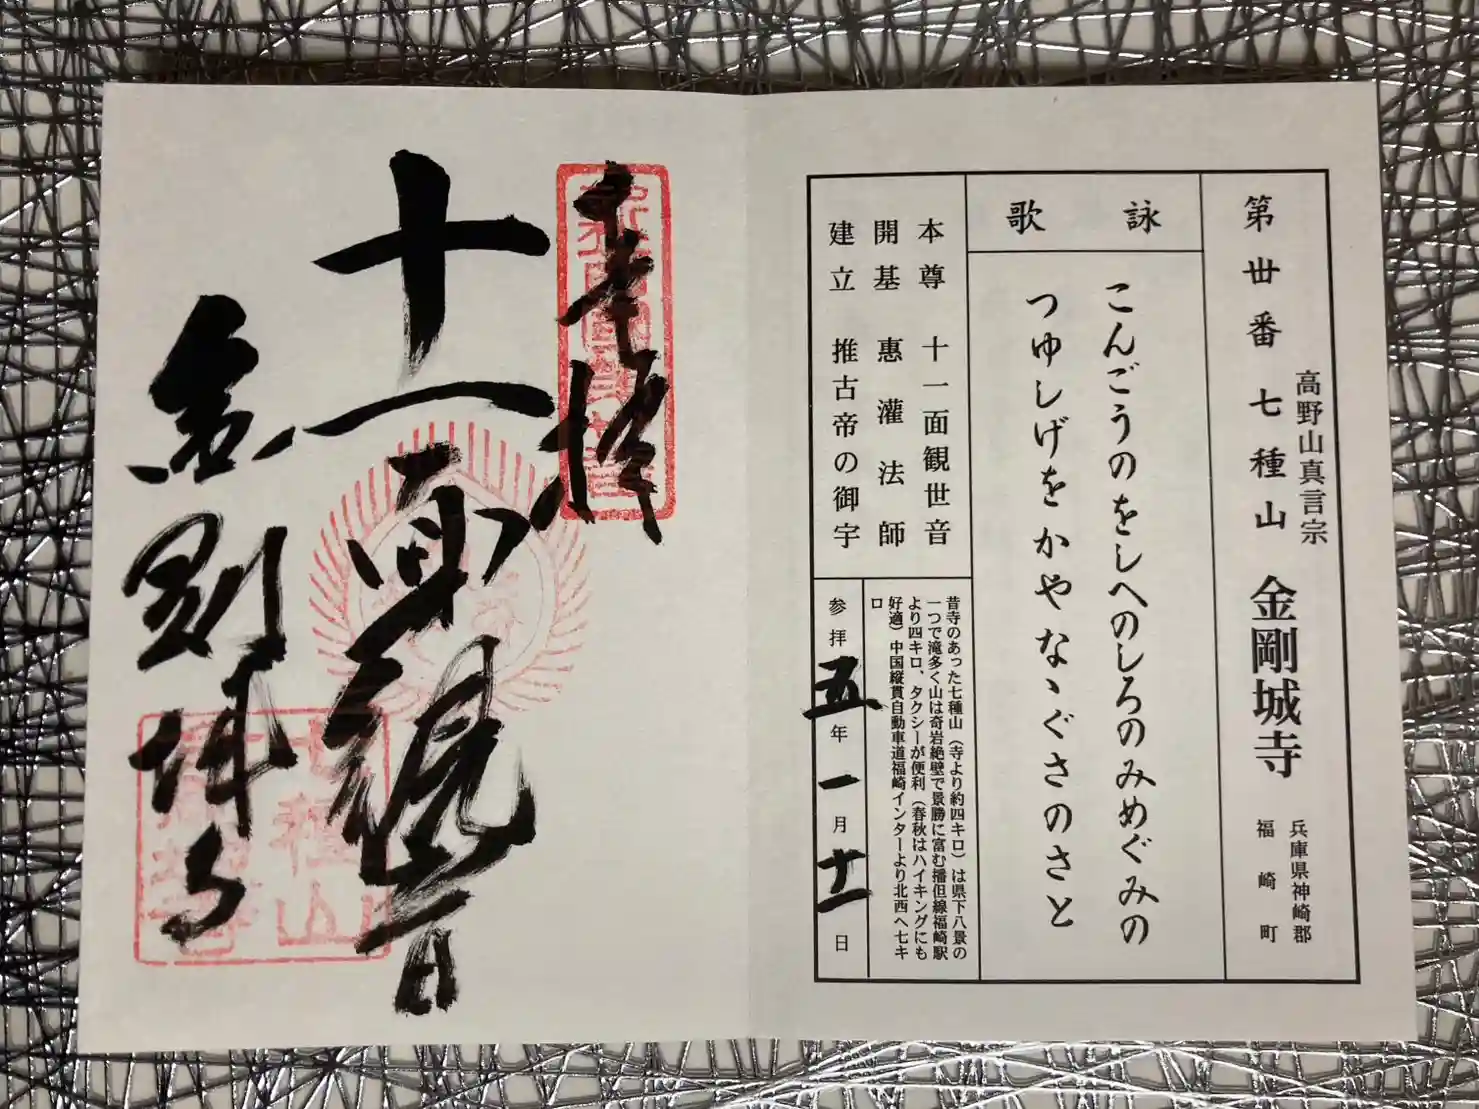 高野山真言宗
第丗番 七種山 金剛城寺
兵庫県神崎郡
福崎町
詠歌
こんごうのをしへのしろのみめぐみの
つゆしげをかやなゝぐさのさと
本尊 十一面観世音
開基 惠灌法師
建立 推古帝の御宇
昔寺のあった七種山（寺より約四キロ）は県下八景の
一つで滝多く山は奇岩絶壁で景勝に富む播但線福崎駅
より四キロ、タクシーが便利（春秋はハイキングにも
好適）中国縦貫自動車道福崎インターより北西へ七キ
ロ
参拝五年一月十一日
奉拝
十一面観世音
金剛城寺
七種山